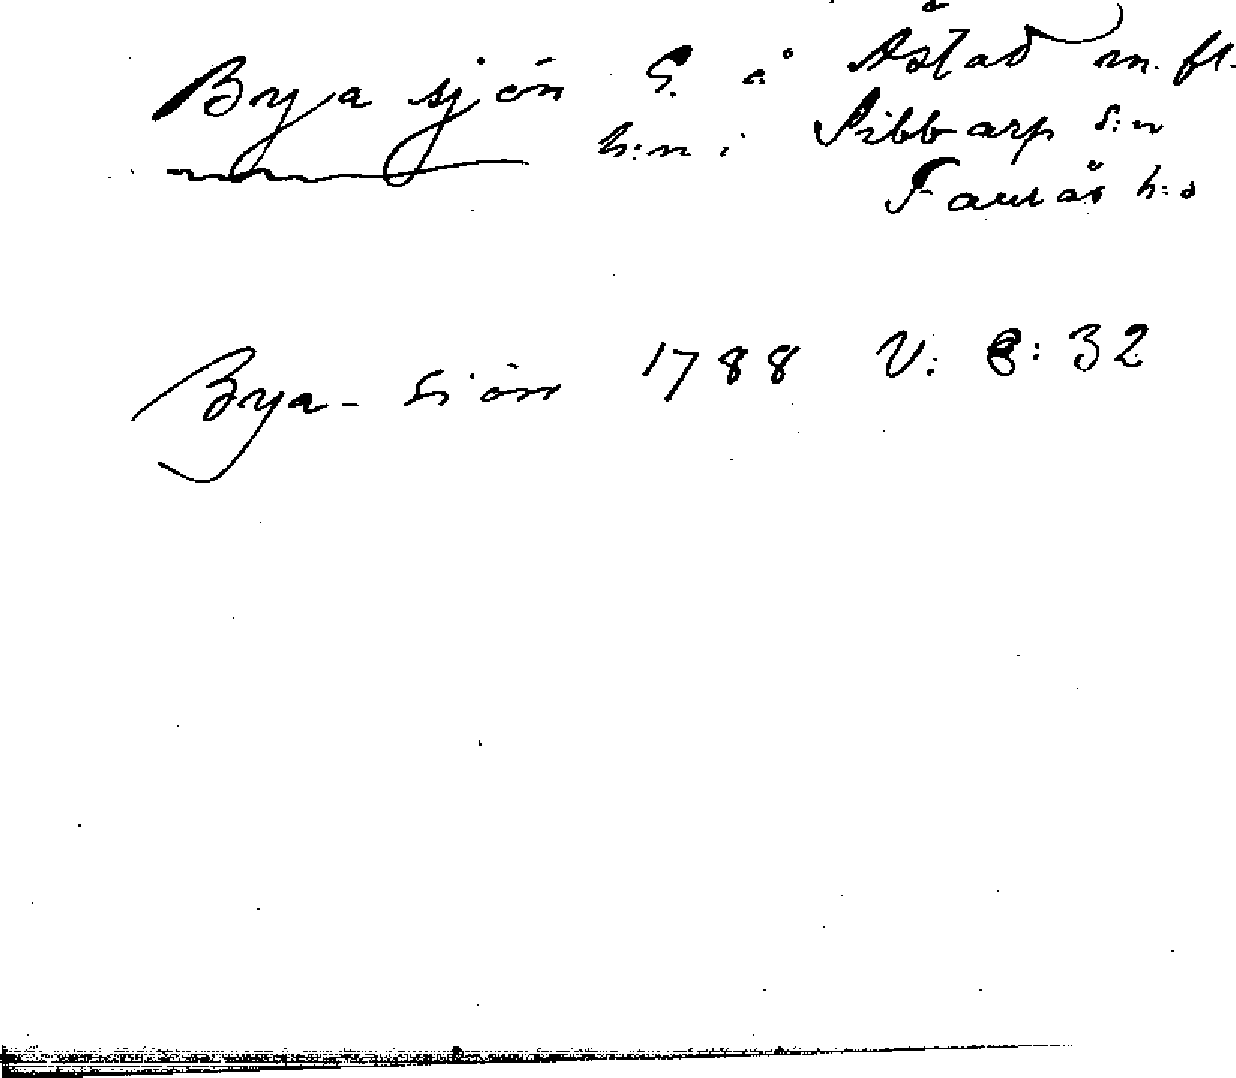 Byasjön S. å Åstad m. fl.
h:n i Sibbarp s:n
Faurås h:d
Bya-Siön 1788 V: 8: 32